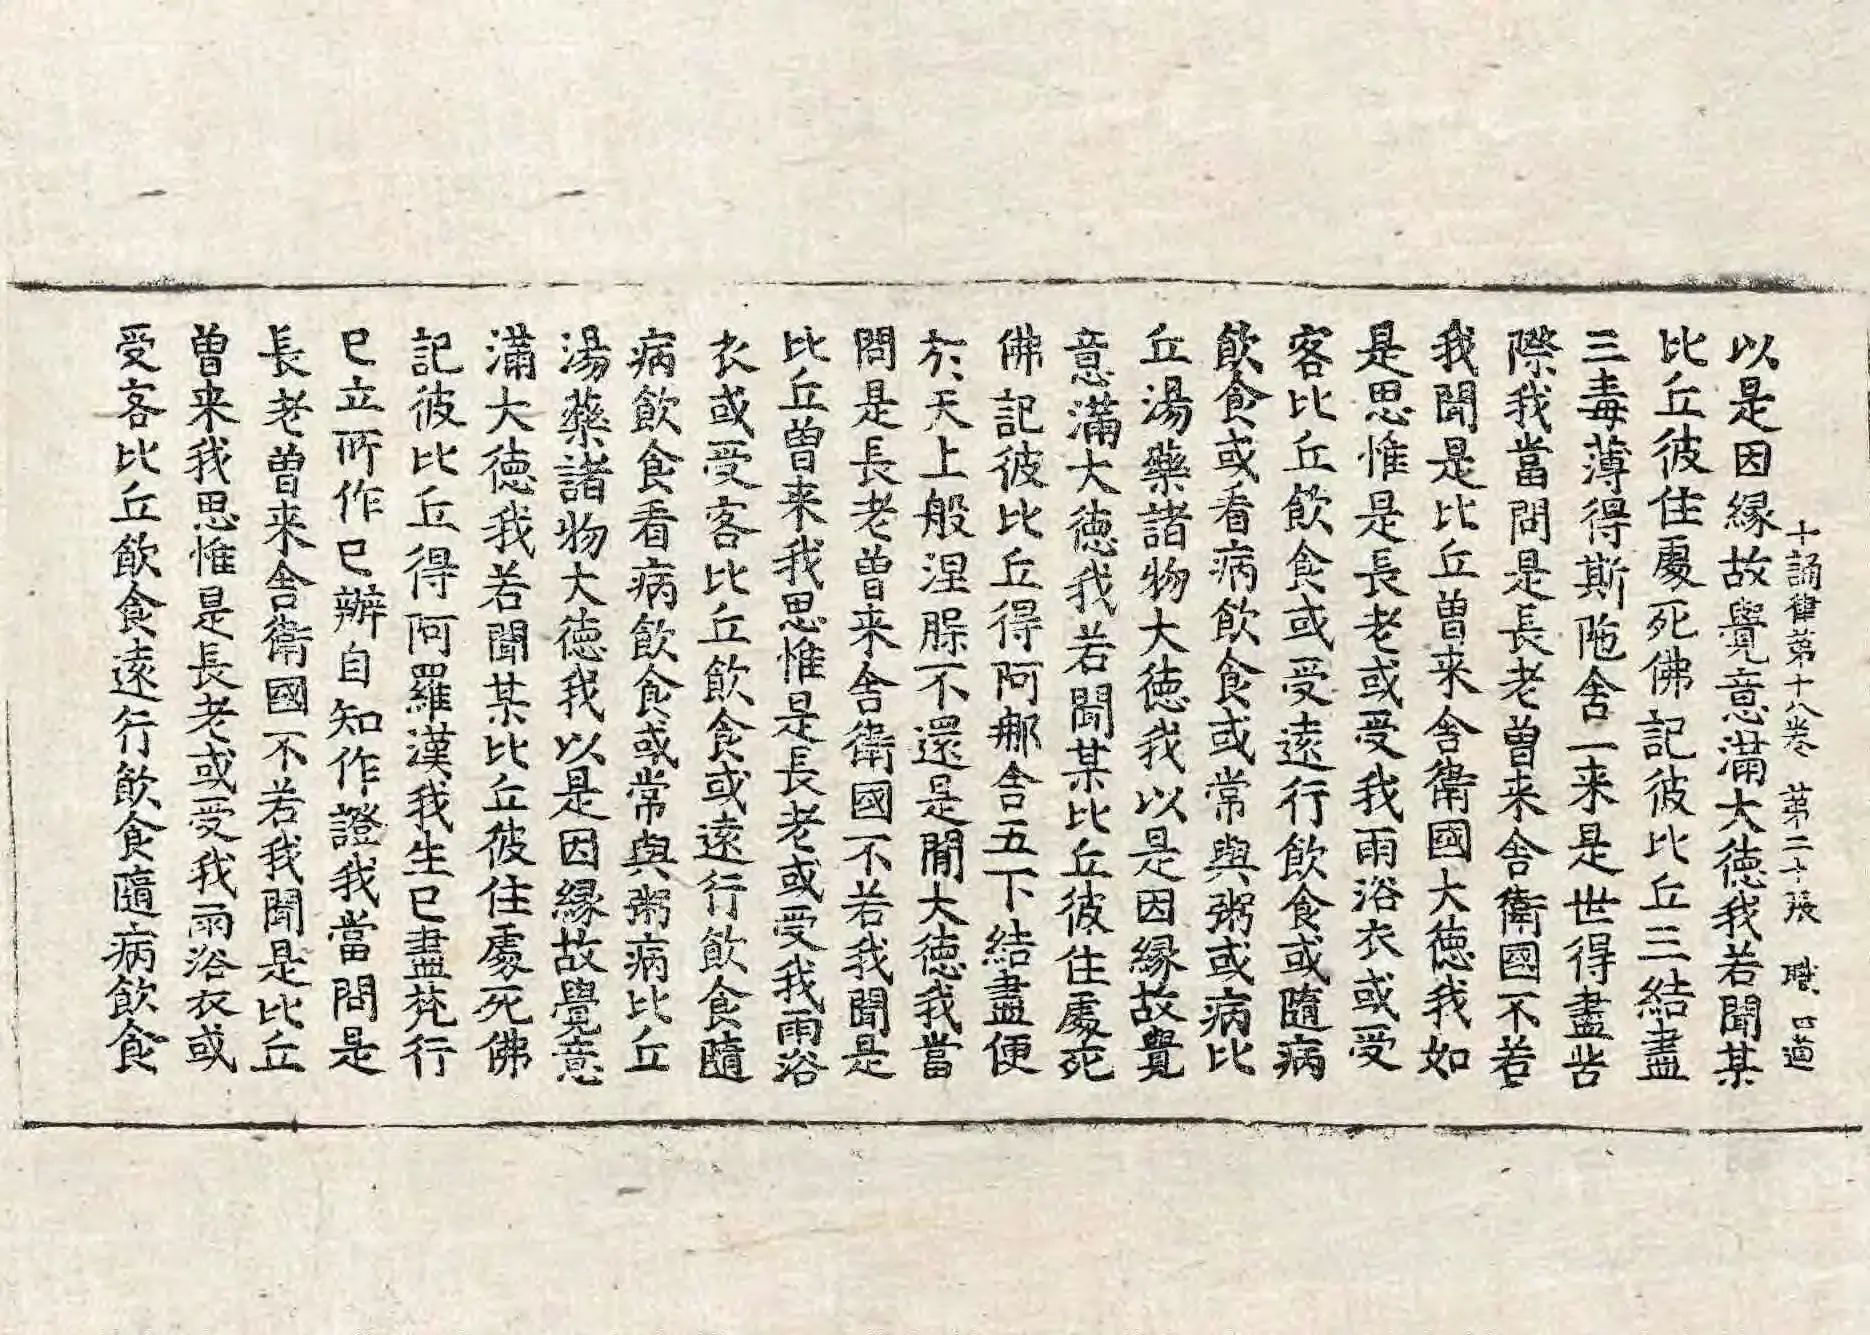 十誦律苐十八卷 苐二十張 職 四 道
以是因縁故覺意滿大徳我若聞某
比丘彼住處死佛記彼比丘三結盡
三毒薄得斯陁舍一来是世得盡苦
際我當問是長老曽来舍衛國不若
我聞是比丘曽来舍衛國大徳我如
是思惟是長老或受我雨浴衣或受
客比丘飲食或受逺行飲食或隨病
飲食或看病飲食或常與粥或病比
丘湯藥諸物大徳我以是因縁故覺
意滿大徳我若聞某比丘彼住處死
佛記彼比丘得阿那舍五下結盡便
於天上般涅脲不還是閒大徳我當
問是長老曽来舍衛國不若我聞是
比丘曽来我思惟是長老或受我雨浴
衣或受客比丘飲食或逺行飲食隨
病飲食看病飲食或常與粥病比丘
湯藥諸物大徳我以是因縁故覺意
滿大徳我若聞某比丘彼住處死佛
記彼比丘得阿羅漢我生巳盡梵行
巳立所作巳辦自知作證我當問是
長老曽来舍衛國不若我聞是比丘
曽来我思惟是長老或受我雨浴衣或
受客比丘飲食逺行飲食隨病飲食